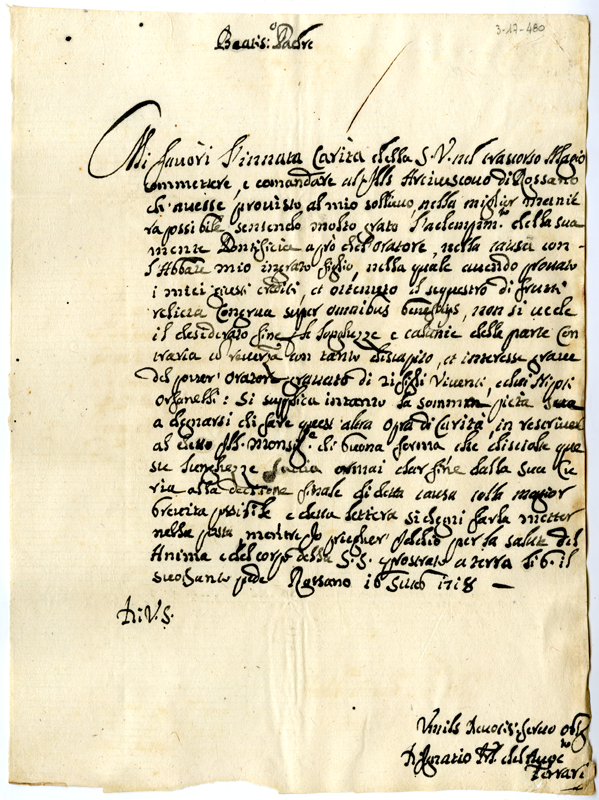 3-17-480
Beatis:º Padre
Mi favorì l'innata Carità della S. V. nel trascorso Magio
commettere, e comandare al Ills Arcivescovo di Rossano
ch'avesse provisto al mio sollievo, nella miglior manie
ra possibile sentendo molto grato l'adempim.to della sua
mente Pontificia a prò dell'oratore, nella causa con
l'Abbate mio ingrato figlio, nella quale avendo provato
i miei giusti crediti, et ottenuto il sequestro di frutti
relicta Congrua super omnibus beneficijs, non si vede
il desiderato fine le lungherzze e calunie della parte Con
traria con tanto discapito, et interesse grave
del pover' oratore gravato di figli Viventi, e dui Nipoti
Orfanelli: Si supplica intanto la somma pietà sua
a degnarsi di fare quest'altra opra di Carità in rescrivere
al detto Ill. Monsig.re di buona forma che disciolte que
ste lunghezze faccia ormai dar fine dalla sua Cu
ria alla decisione finale di detta causa colla magior
brevità possibile e detta lettera si degni farla metter
nella posta mentre Io pregherò Iddio per la salute del
Anima e del corpo della S. S. e prostrato a terra li b. il
suo Santo piede Rossano 16 1718 —
Di V. S.
Umils Devotis: servo obl
D. Ignatio M. del
Ferrari